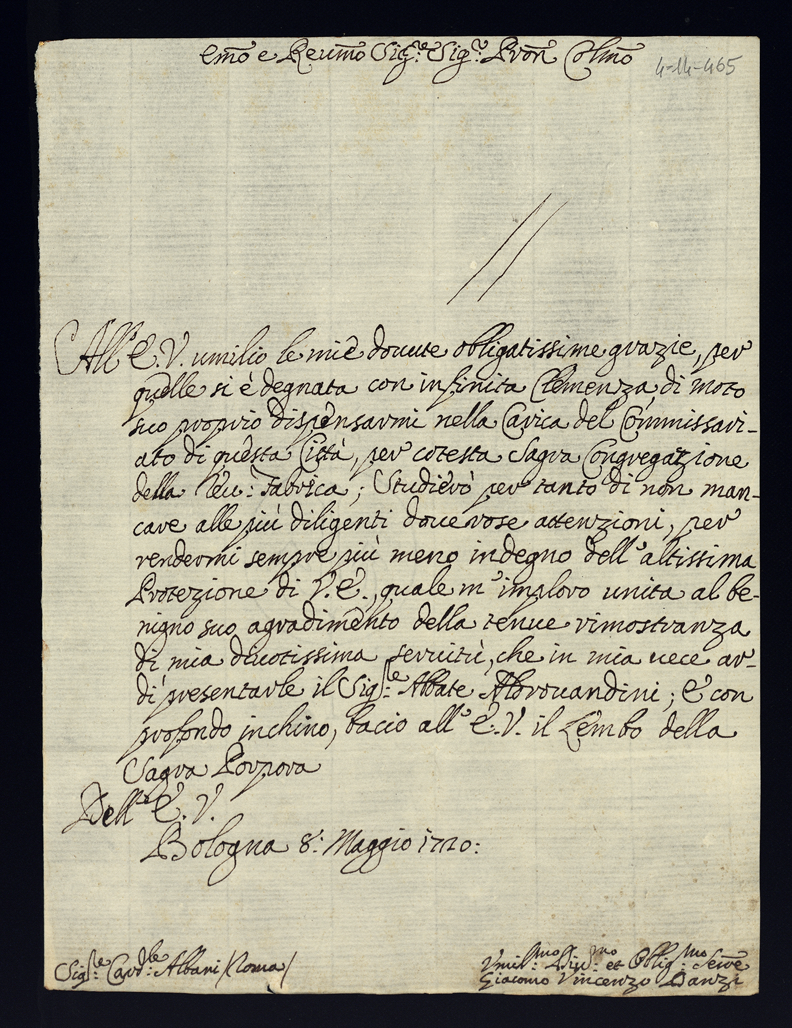 Emõ e Reumõ Sig.re Sig.r Pron Colmõ
4-14-465
All' E.V. umilio le mie douute obligatissime grazie, per
quelle si è degnata con infinita Clemenza, di moto
suo proprio dispensarmi nella Carica del Commissari-
ato di questa Città, per cotesta Sagra Congregazione
della Reu: Fabrica; Studierò per tanto di non man-
care alle più diligenti douerose attenzioni, per
rendermi sempre più meno indegno dell' altissima
Protezione di V.E., quale m' imploro unita al be-
nigno suo agradimento della tenue rimostranza
di mia deuotissima seruitù, che in mia uece ar-
dì presentarle il Sig.re Abbate Aldrouandini; E con
profondo inchino, bacio all' E.V. il Lembo della
Sagra Porpora
Dell' E. V.
Bologna 8: Maggio 1720:
Sig.re Card.le Albani /Roma/
Vmil.mo Diu.mo et Oblig.mo Seruẽ
Giacomo Vincenzo Danzi